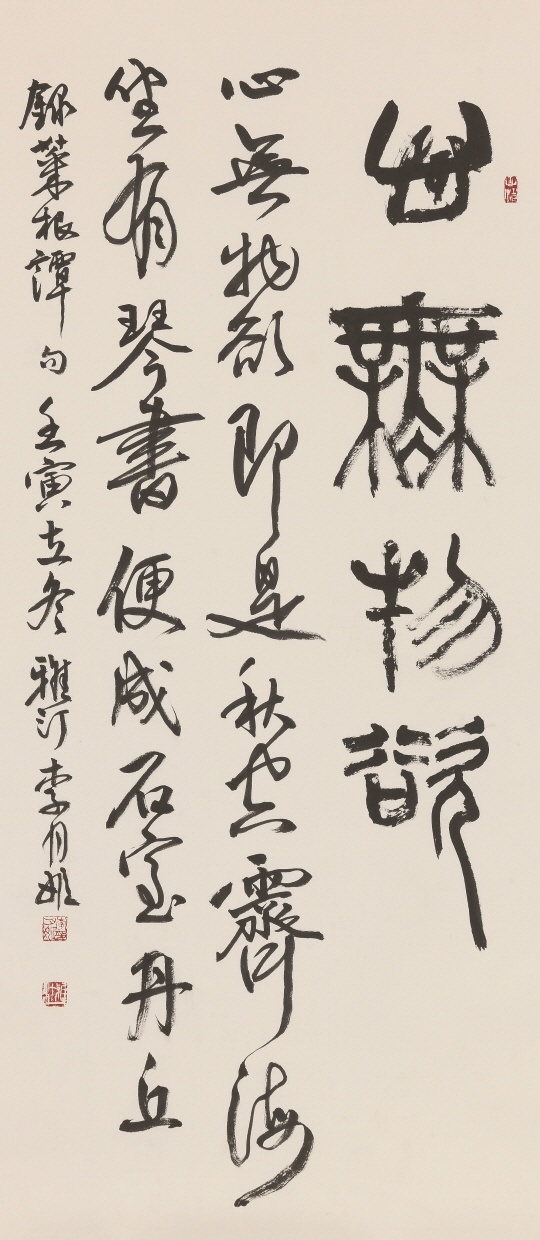 心無物欲
心無物欲即是秋空霽海
坐有琴書便成石室丹丘
錄菜根譚句壬寅立冬雅汀李月姬